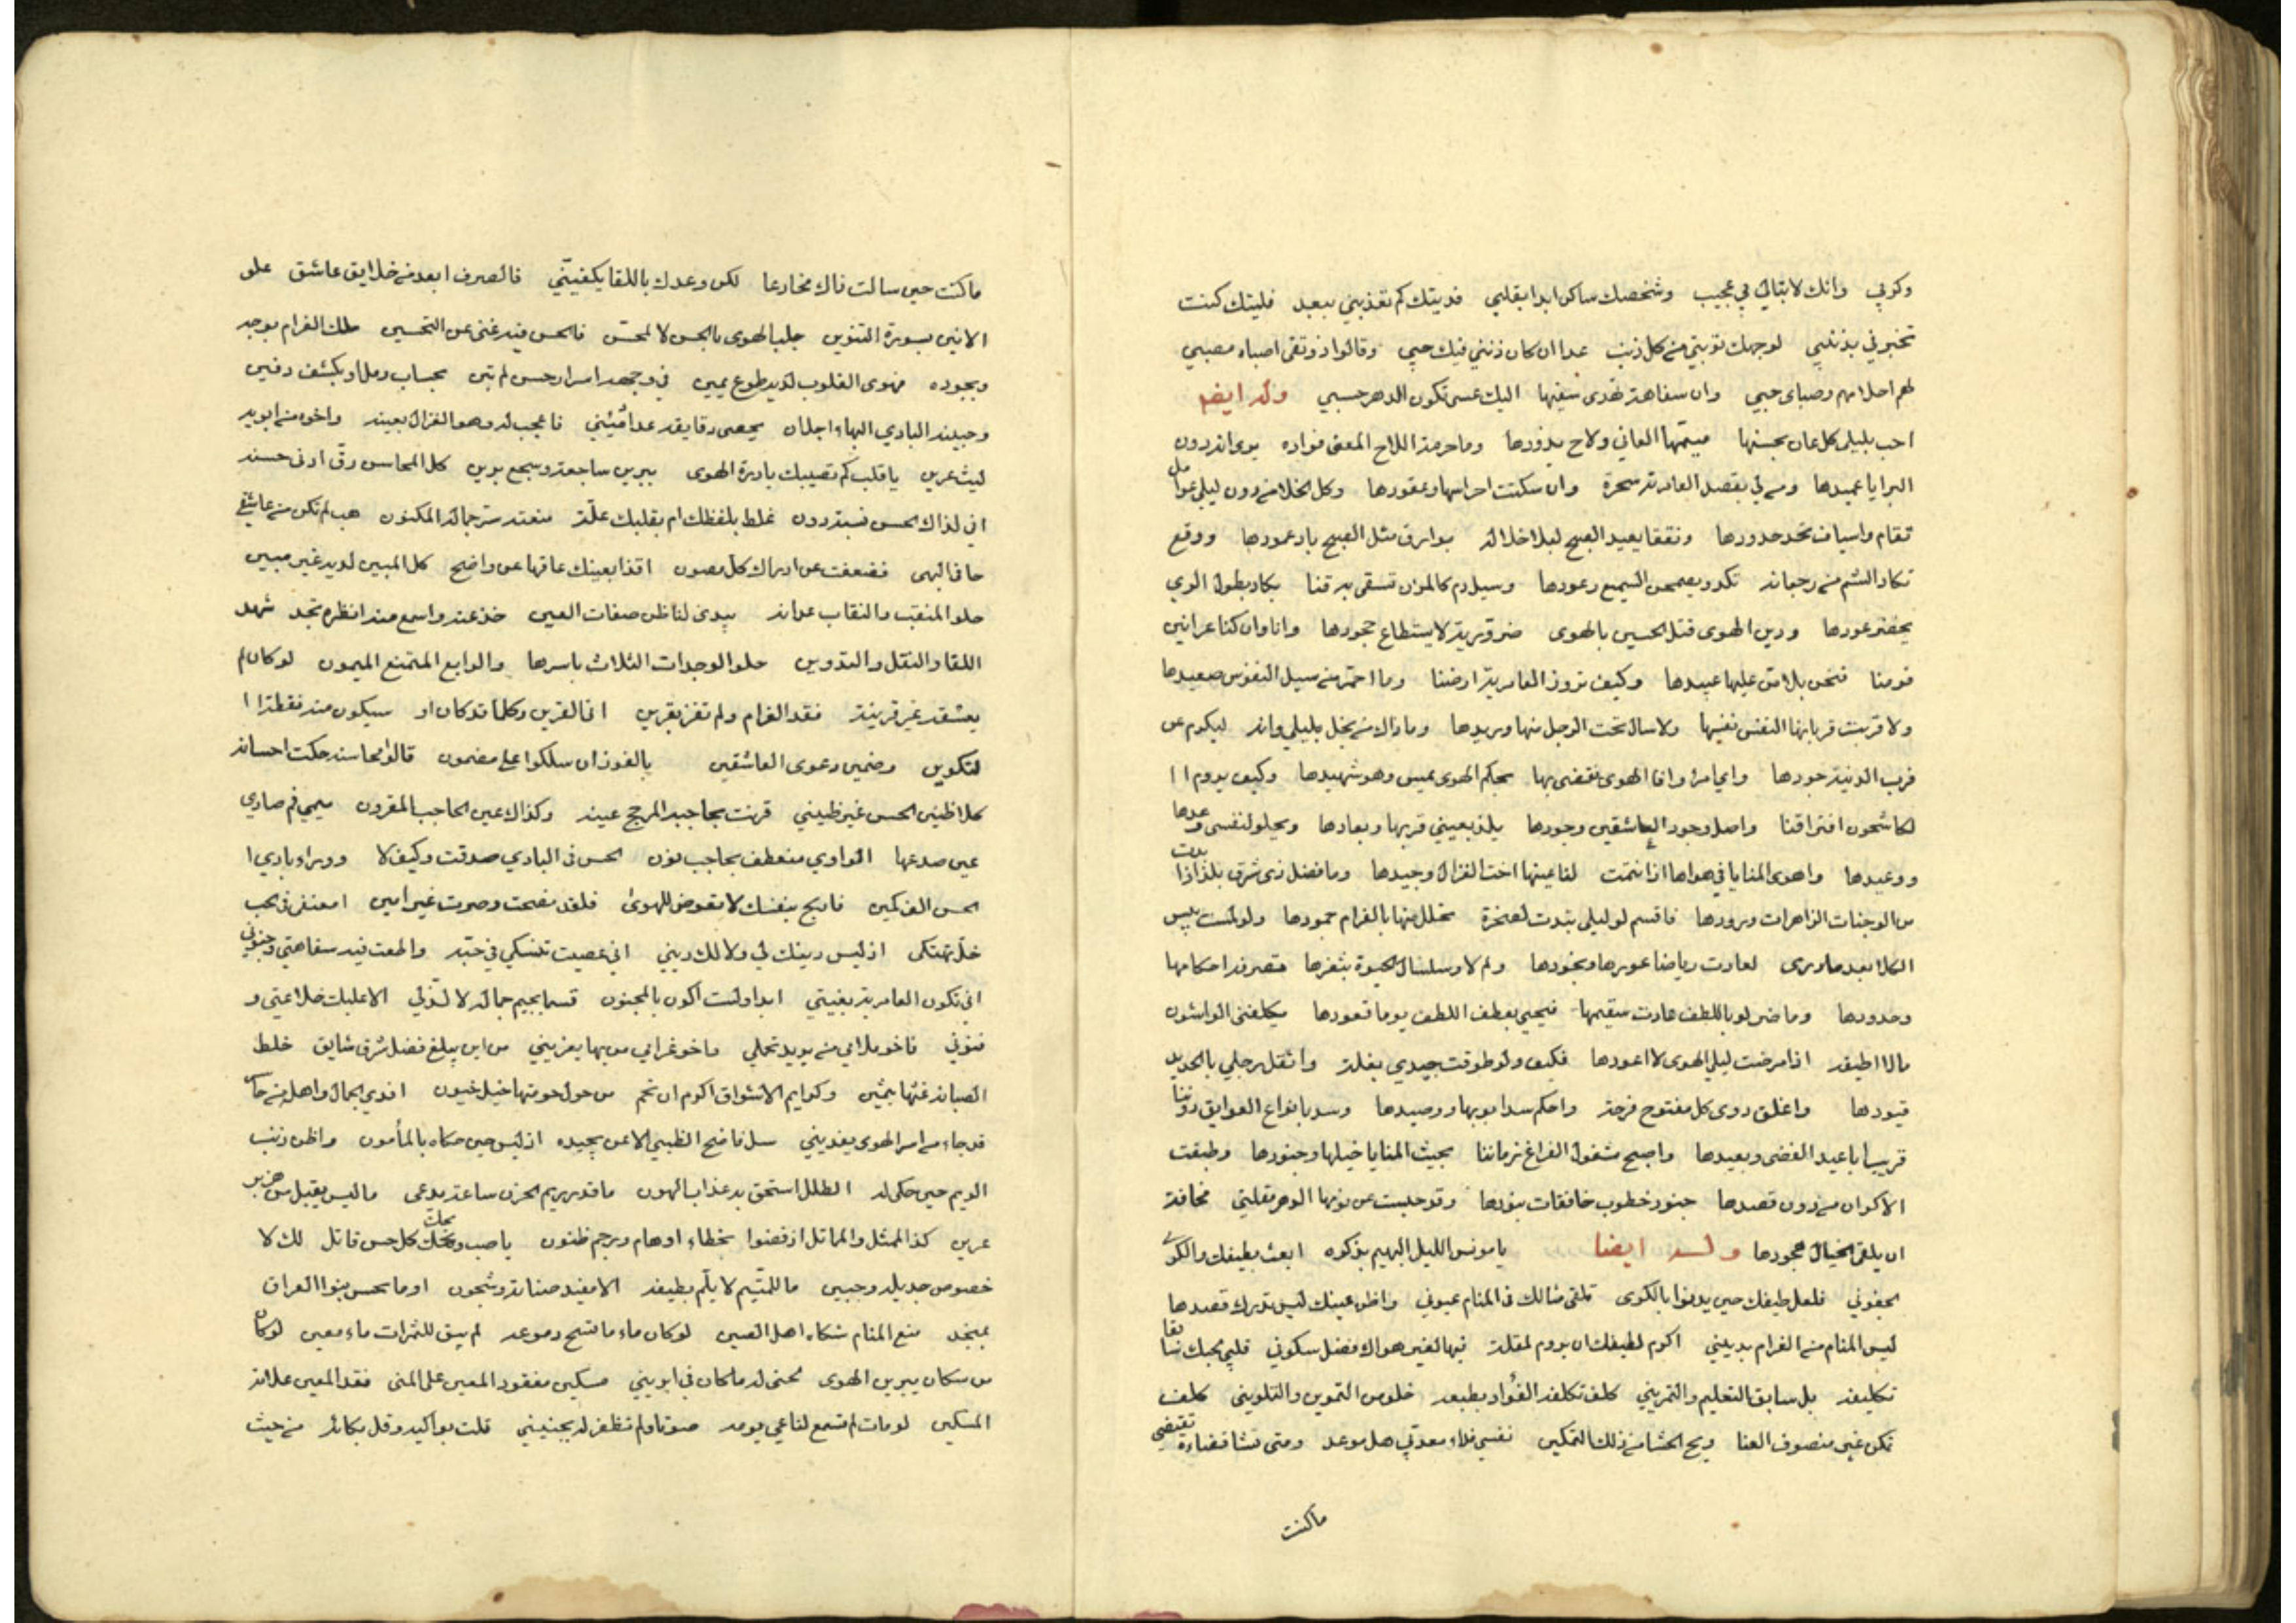 وكربي وانك لا تبالي بي عجيب وشخصك ساكن ابدا بقلبي فديتك كم تعذبني ببعد فليتك كنت
تخبرني بذنبي لوجهك توبتي من كل ذنب عدا ان كان ذنبي فيك حبي وقالوا ذو تقى اصباه مصبي
لهم احلامهم وصباى حبي وان سفاهة تهدى سفيها اليك عسى تكون الدهر حسبي وله ايضا
احب بليلى كل عان بحسنها متيمها العاني ولاح يذودها وما حرمة اللاح المعنى فواده يرى انه دون
البرايا عميدها ومن لي بقصد العامرية سحرة وان سكنت احراسها وعقودها وكل الخلا من دون ليلى عوامل
تقام واسياف تحد حدودها ونقعا يعيد الصبح ليلا خلاله بوارق مثل الصبح باد عمودها ووقع
تكاد الشم من رجفاته تكد ويصمحن السميع رعودها وسيل دم كالمزن تسقى به قنا يكاد بطول الري
يخضر عودها ودين الهوى قتل الحسين بالهوى ضرورية لا يستطاع جحودها وانا وان كنا عرانين
قومنا فنحن بلا من عليها عبيدها وكيف تزور العامرية ارضنا وما احمر من سيل النفوس صعيدها
ولا قربت قربانها النفس نفيسها ولا سال تحت الرجل منها وريدها وما ذاك من بخل بليلى وانه ليكرم عن
قرب الدنية جودها وايامها وافا الهوى نقضى بها بحكم الهوى عيس وهو شهيدها وكيف يروم ا
لكاشحون افتراقنا واصل وجود العاشقين وجودها يلذ بعيني قربها وبعادها ويحلو لنفسى وعدها
ووعيدها واهوى المنايا في هواها اذا انتمت لفاعينها اخت الغزال وجيدها وما فضل ذى شرق بلذ اذا بدت
من الوجنات الزاهرات ورودها فاقسم لو ليلى تبدت لصخرة تخلل منها بالغرام جمودها ولو لمست يبس
الكلا بعد ما يرى لعادت رياضا غورها ونجودها ولم لا وسلسال الحيوة بثغرها متصرفه احكامها
وحدودها وما ضر لو باللطف عادت سقيمها فيحيى بعطف اللطف يوما قعودها يكلفني الواشون
مالا اطيقه اذا مرضت ليلى الهوى لا اعودها فكيف ولو طوقت جيدي بغلة واثقل رجلي بالحديد
قيودها واغلق دوى كل مفتوح فرجة واحكم سد ابوابها ووصيدها وسد بانواع العوايق دوننا
قريب اباعيد الفضى وبعيدها واصبح مشغول الفراغ زماننا بجيش المنايا خيلها وجنودها وطبقت
الاكوان من دون قصدها جنود خطوب خافقات بنودها وقد حبست عن نومها الدهر مقلتي مخافة
ان يلقى الخيال هجودها وله ايضا يا مونس الليل البهيم بذكره ابعث بطيفك والكرى
لجفوني فلعل طيفك حين يدنوا بالكرى تلقى مثالك فى المنام عيوني واظن عينك ليس تدرك قصدها
ليس المنام من الغرام بديني اكرم لطيفك ان يروم لمقلة فيها لغير هواك فضل سكوني قلبي بحبك سابقا
تكليفه بل سابق التعليم والتمريني كلف تكلفه الفؤاد بطبعه خلوص التموين والتلويني كلف
تمكن غير منصوف العنا ويح الحشا من ذلك التمكين نفسى فداء معذبي هل موعد ومتى تشا فقضاءه تقتضى
ماكنت
ماكنت حين سالت فاك مخادعا لكن وعدك باللقا يكفيني فالصرف ابعد من خلايق عاشق علو
الانين بسورة التنوين جلب الهوى بالحسن لا لمحسن فالحسن فيه غنى عن التحسين ملك الغرام بوجه
وبجوده مهوى القلوب لديه طوع يمين في وجهه اسرار حسن لم تبن بحساب رمل او بكشف دفين
وجبينه البادي البها اجلان يحصى دقايقه عدا مئين فاعجب له وهو الغزال بعينه واخوه من ابويه
ليث عرين يا قلب كم تصيبك بادرة الهوى ببرين ساجعة وسجع برين كل المحاسن رق ادنى حسنه
انى لذاك الحسن نسبة دون غلط بلفظك ام بقلبك علة منعته ستر جماله المكنون هب لم تكن من عاشقي
حافي البهى فضعفت عن ادراك كل مصون اقذا بعينك عاقها عن واضح كل المبين لديه غير مبين
حلو المنقب والنقاب علانه يبدى لناظر صفات العين خذ عنه واسمع منه انظره تجد شهد
اللقا والنقل والتدوين حلو الوجدات الثلاث باسرها والرابع المتمنع الميمون لو كان لم
يعشقه غير قرينة فقد الغرام ولم تفز بقرين انى القرين وكلما قد كان او سيكون منه نقطة ا
لتكوين وضمين دعوى العاشقين بالفوز ان سلكوا على مضمون قالوا محاسنه حكت احسانه
كلا ظنين الحسن غير ظنيني قرنت بحاجبه المرجح عينه وكذاك عين الحاجب المقرون ميمي فم صادي
عين صدعها الواوي منعطف بحاجب نون الحسن فى البادي صدقت وكيف لا ووراء بادي ا
لحسن الف كمين فاربح بنفسك لا تعرض للهوى فلقد نصحت وصرت غير امين امعنفى فى حب
خل تهتكى اذ ليس دينك لي ولا لك ديني اني عصيت تنسكي في حبه واطعت فيه سفاهتي وجنوني
انى تكون العامرية بغيتي ابدا ولست اكون بالمجنون قسما بجيم جماله لا لذ لي الا عليك خلاعتي و
فنوني فاخو ملامي من يريد تخلي واخو غرامي من بها يغريني من اين يبلغ فضل شرق شايق خلط
الصبابة غثها بثمين وكرايم الاشواق اكرم ان تحم من حول حومتها خيل خيون افدي الجمال واهله من حاكم
قد جاء من اسر الهوى يفديني سل فاضح الظبي الاغن بجيده اذ ليس حين حكاه بالمأمون واظن ذنب
الريم حين حكى له الطلل استحق به عذاب الهون ما قدر ريم الحزن ساعة يدعى ما ليس يقبل من هزبر
عرين كذا الممثل والمماثل اذ قضوا بخطاء اوهام ورجم ظنون يا صب ويحك كل حسن قاتل لك لا
خصوص جديله وجبين ما للمتيم لا يلم بطيفه الا مفيد صبابة وشجون او ما يحس بنوا الغرام
بميتجد منع المنام شكاه اهل العين لو كان ماء ما تسح دموعه لم يبق للثمرات ماء معين لو كان
من سكان يبرين الهوى لحنى له ما كان في ابريني مسكين مفقود المعين على المنى فقد المعين علانة
المسكين لو مات لم تسمع لناعي يومه صوتا ولم تظفر له بجنيني قلت بواكيه وقل بكائه من حيث